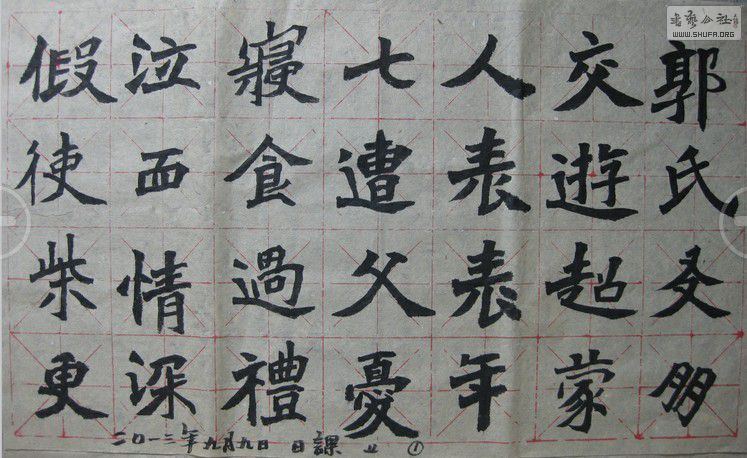 郭氏友朋
交遊超蒙
人表表年
七遭父憂
寢食過禮
泣面情深
假使柴更
二〇一三年九月九日 日課 ①
書藝公社
WWW.SHUFA.ORG